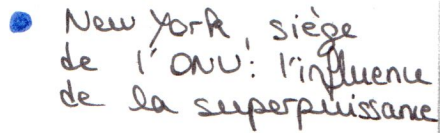 New York, siège
de l'ONU: l'influence
de la superpuissance